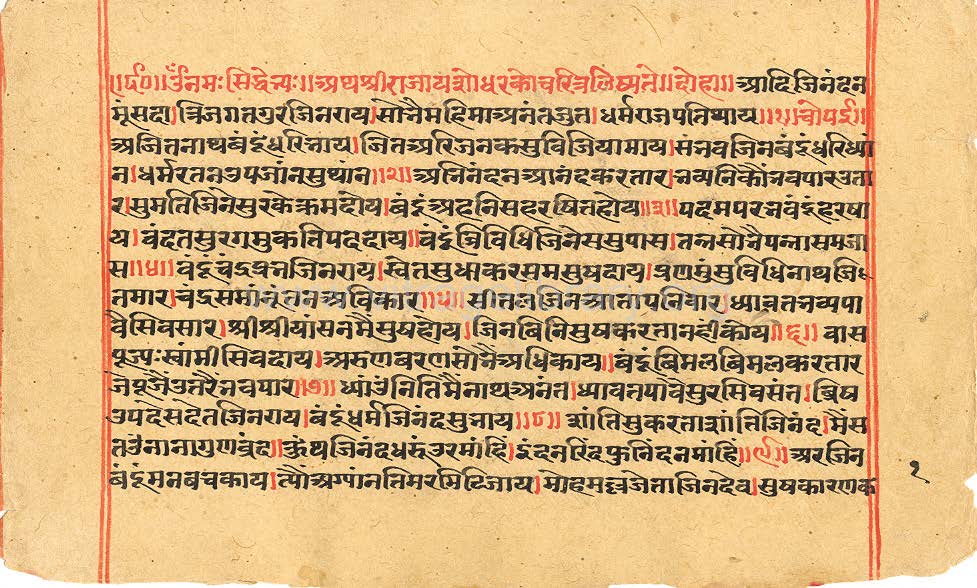 ॥६०॥ ॐनमः सिद्धेभ्यः॥अथश्रीराजायशोधरकोचरित्रलिष्यते॥दोहा॥ आदिजिनंदन
मूंसदा।त्रिजगतगुरजिनराय।सोभैमहिमाअनंतजुत।धर्मराजपतिथाय॥१॥चौपई॥
अजितनाथबंदूंधरिभाय।जितअरिजनकसुविजियामाय।संभवजिनबंदूंधरिध्यां
न।धर्मरतनउपजांनसुथांन॥२॥अभिनंदनआनंदकरतार।भव्यनिकौंभवपारउता
र।सुमतिजिनेसुरकेक्रमदोय।बंदूंअहनिसहरषितहोय॥३॥पदमपरभवंदूंहरषा
य।बंदतसुरगमुकतिपददाय॥बंदूंत्रिविधिजिनेससुपास।तनसोभैपन्नासमजा
स॥४॥बंदूंचंद्रप्रभजिनराय।स्वेतसुधाकरसमसुषदाय।प्रणमुंसुविधिनाथजि
तमार।चंद्रसमांनंतनअविकार॥५॥सीतलजिनआतापनिवार।ध्यावतभव्यपा
वैसिवसार।श्रीश्रीयांसनमैसुषहोय।जिनबिनिसुषकरतानहीकोय॥६॥ वास
पूज्यःस्वांमीसिवदाय।अरुणबरणसोभैअधिकाय॥बंदूंबिमलबिमलकरतार
जेपूजैंउतरैंभवपार॥७॥ध्यांऊंनितिमैनाथअनंत।ध्यावतपावैसुरसिवसंत।द्विविध
उपदेसदेतजिनराय।बंदूंधर्मजिनंदसुभाय॥८॥ शांतिसुकरताशांतिजिनंद।मैंस
तऊंनानागुणब्रंद॥कुंथजिनंदधरुंउरमांहिं।इंदनरिंदफुनिंदनमांहिं॥९॥अरजिन
बंदूंमनबचकाय।त्यौंअग्यांनतिमरमिटिजाय।मोहमल्लजेताजिनदेव।सुषकारणक
१